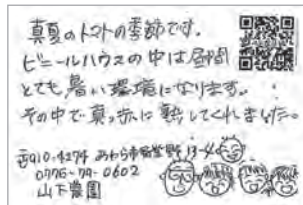 真夏のトマトの季節です。
ビニールハウスの中は昼間
とても暑い環境になります。
その中で真っ赤に熟してくれました。
〒910-4274 あわら市 野 13-4
0776-79-0602
山下農園